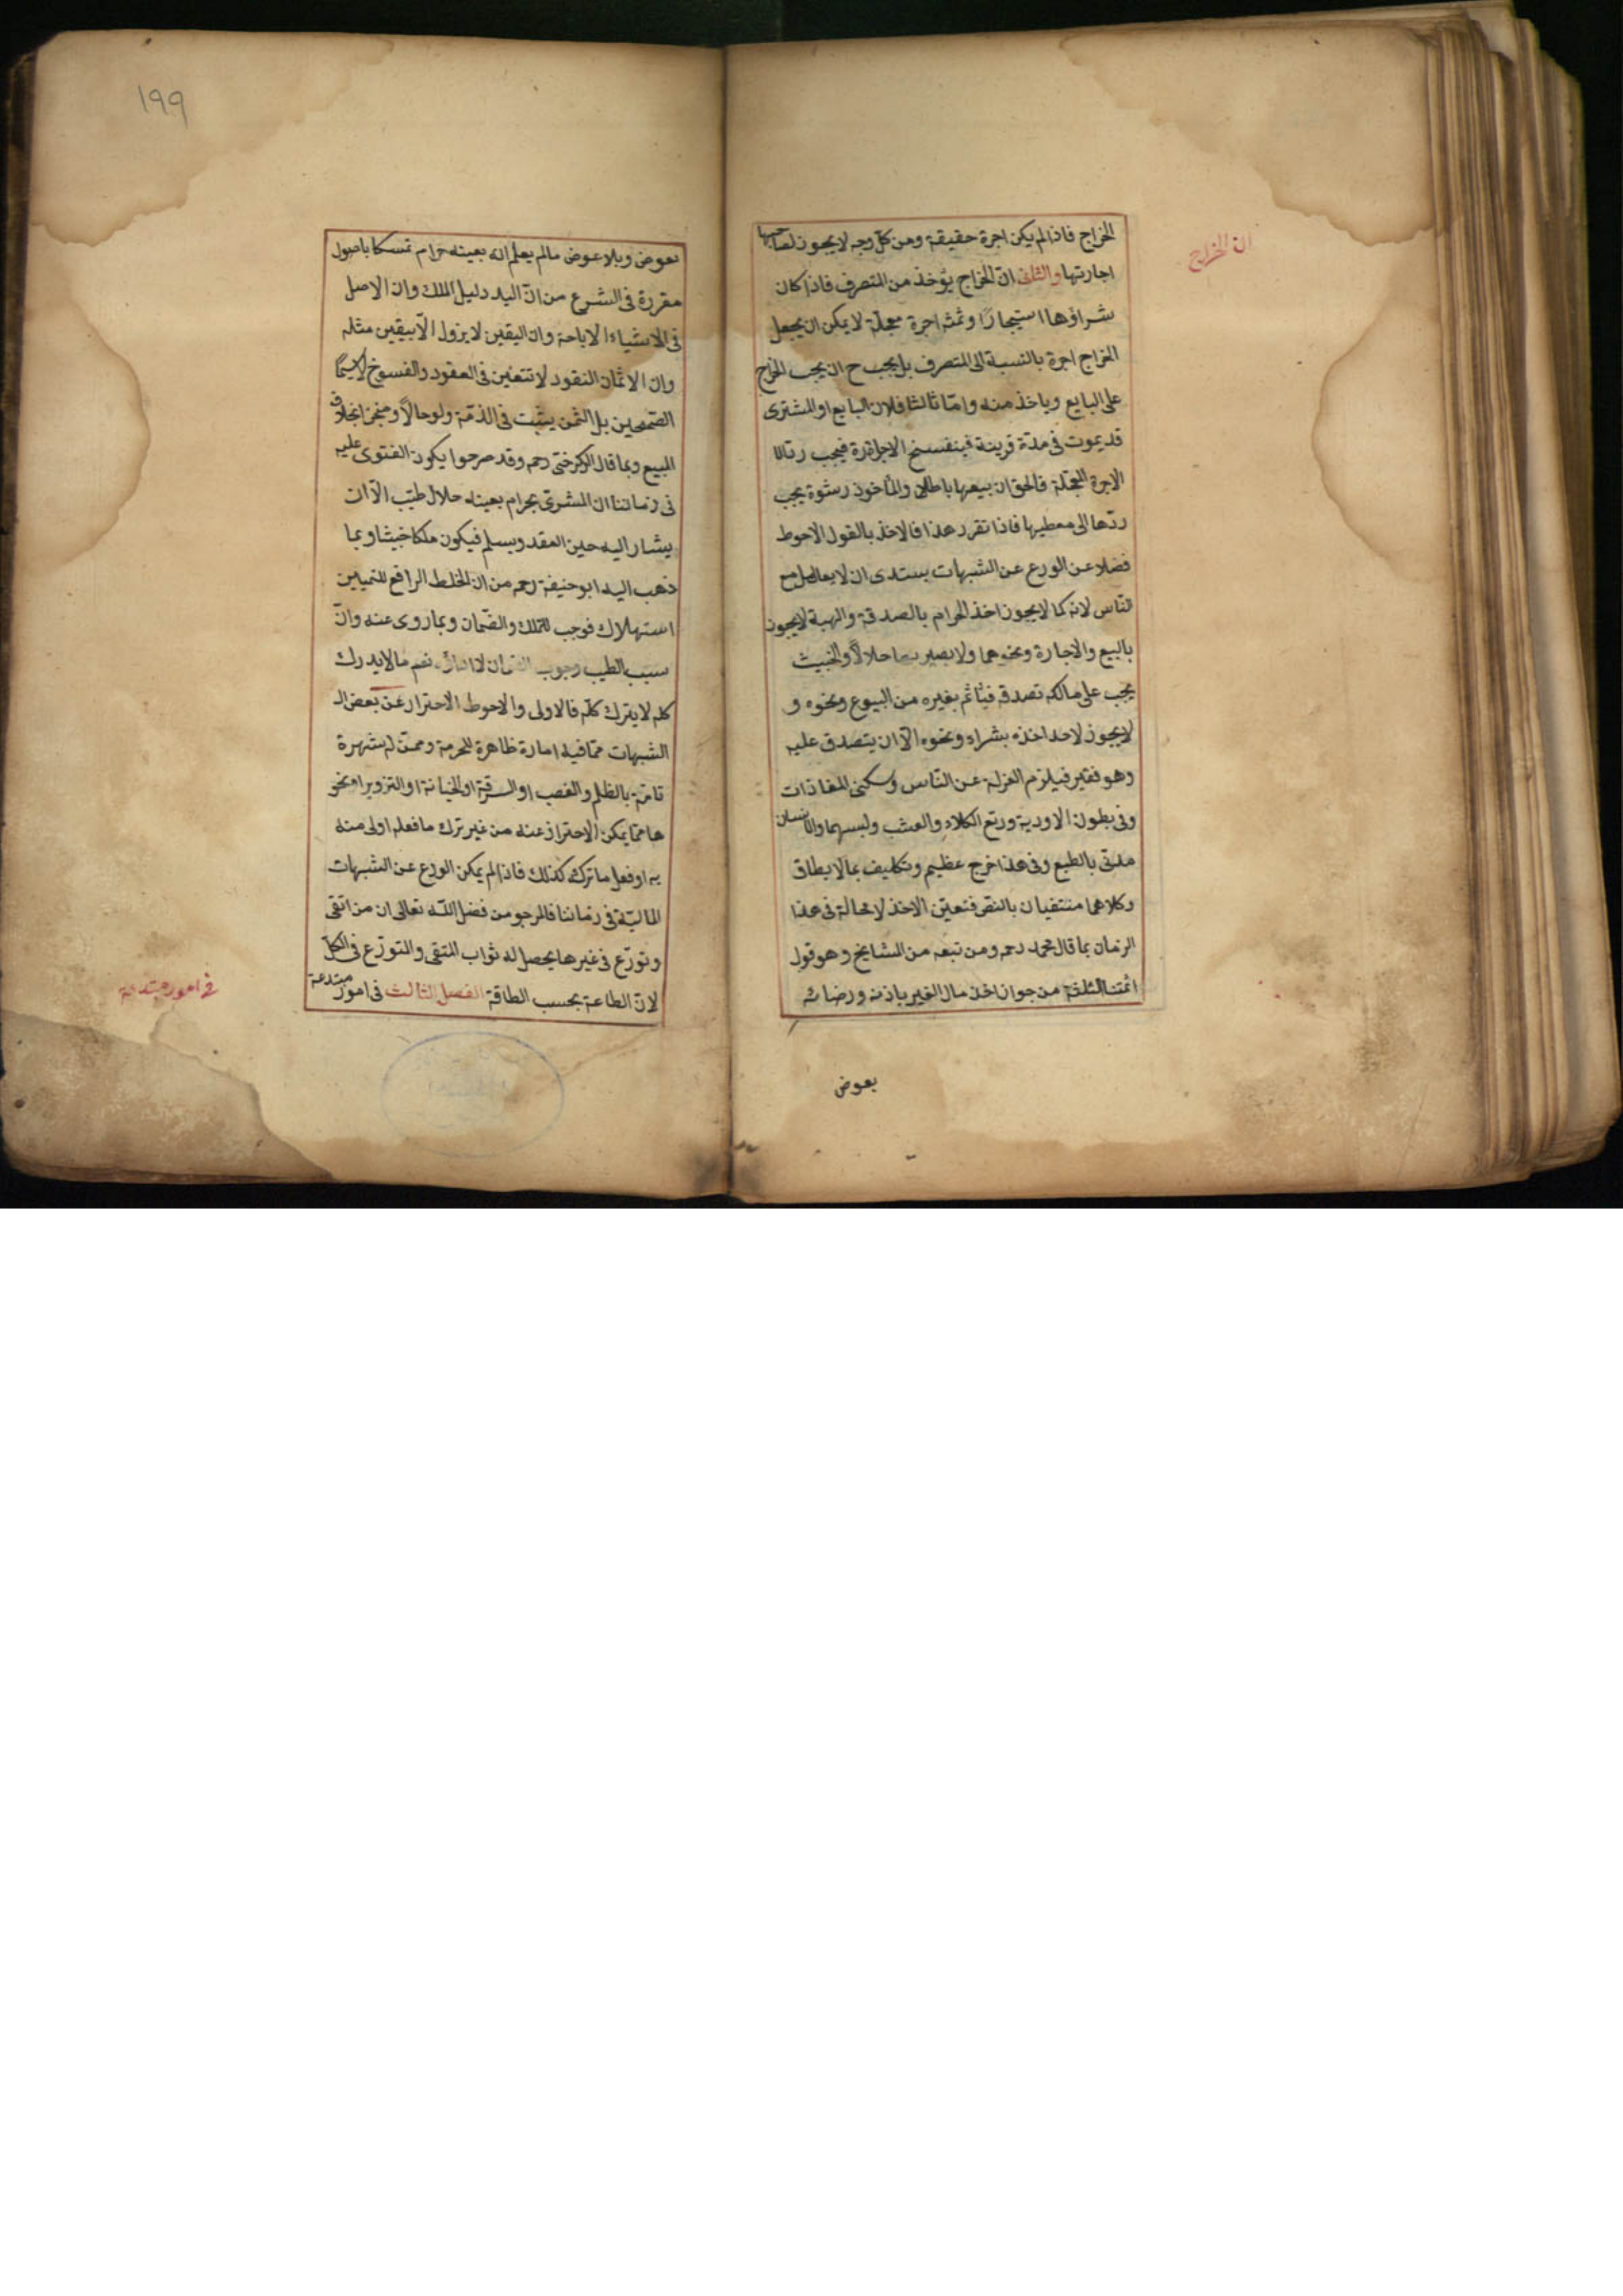 الخراج فاذا لم يكن اجرة حقيقة ومن كل وجه لا يجوز لصاحبها
ان الخراج
اجارتها والثانى ان الخراج يؤخذ من المتصرف فاذا كان
شراؤها استيجارًا وثمنه اجرة معجلة لا يمكن ان يجعل
الخراج اجرة بالنسبة الى المتصرف بل يجب ح ان يجب الخراج
على البايع وياخذ منه واما ثالثا فلان البايع او المشترى
قد يموت فى مدة قريبة فينفسخ الاجارة فيجب رد
الاجرة المعجلة فالحق ان بيعها باطل والمأخوذ رشوة يجب
ردها الى معطيها فاذا تقرر هذا فالاخذ بالقول الاحوط
فضلا عن الورع عن الشبهات يستدى ان لا يعامل مع
الناس لانه كما لا يجوز اخذ الحرام بالصدقة والهبة لا يجوز
بالبيع والاجارة ونحوهما ولا يصير بها حلالاً والخبيث
يجب على مالكه تصدقه فيأثم بغيره من البيوع ونحوه و
لا يجوز لاحد اخذه بشراء ونحوه الا ان يتصدق عليه
وهو فقير فيلزم العزلة عن الناس وسكنى المفاذات
وفى بطون الاودية ورتع الكلاء والعشب ولبسهما والانسان
مدنى بالطبع وفى هذا خرج عظيم وتكليف بما لا يطاق
وكلاهما منتفيان بالنص فتعين الاخذ لا محالة فى هذا
الزمان بما قال محمد رحمه ومن تبعه من المشايخ وهو قول
ائمتنا الثلثة من جواز اخذ مال الغير باذنه ورضائه
بعوض
١٩٩
بعوض وبلا عوض مالم يعلم انه بعينه حرام تمسكا باصول
مقررة فى الشرع من ان اليد دليل الملك وان الاصل
فى الاشياء الاباحة وان اليقين لا يزول الا بيقين مثله
وان الاثمان النقود لا تتعين فى العقود والفسوخ لا سيما
الصحيحين بل الثمن يثبت فى الذمة ولو حالاً ومنجز بخلاف
المبيع وبما قال الكرخى رحمه وقد صرحوا بكون الفتوى عليه
فى زماننا ان المشترى بحرام بعينه حلال طيب الا ان
يشار اليه حين العقد ويسلم فيكون ملكا خبيثا وبما
ذهب اليه ابو حنيفة رحمه من ان الخلط الرافع للتمييز
استهلاك فوجب للتملك والضمان وبما روى عنه وان
سبب الطيب وجوب الضمان لا اداؤه نعم ما لا يدرك
كله لا يترك كله فالاولى والاحوط الاحتراز عن بعض ال
الشبهات مما فيه امارة ظاهرة للحرمة وممن له شهرة
تامة بالظلم والغصب او السرقة او الخيانة او التزوير او نحو
ها مما يمكن الاحتراز عنه من غير ترك ما فعله اولى منه
به او فعل ما تركه كذلك فاذا لم يمكن الورع عن الشبهات
المالية فى زماننا فالمرجو من فضل الله تعالى ان من اتقى
وتورع فى غيرها يحصل له ثواب المتقى والمتورع فى الكل
لان الطاعة بحسب الطاقة الفصل الثالث فى امور مبتدعة
فى امور مبتدعة